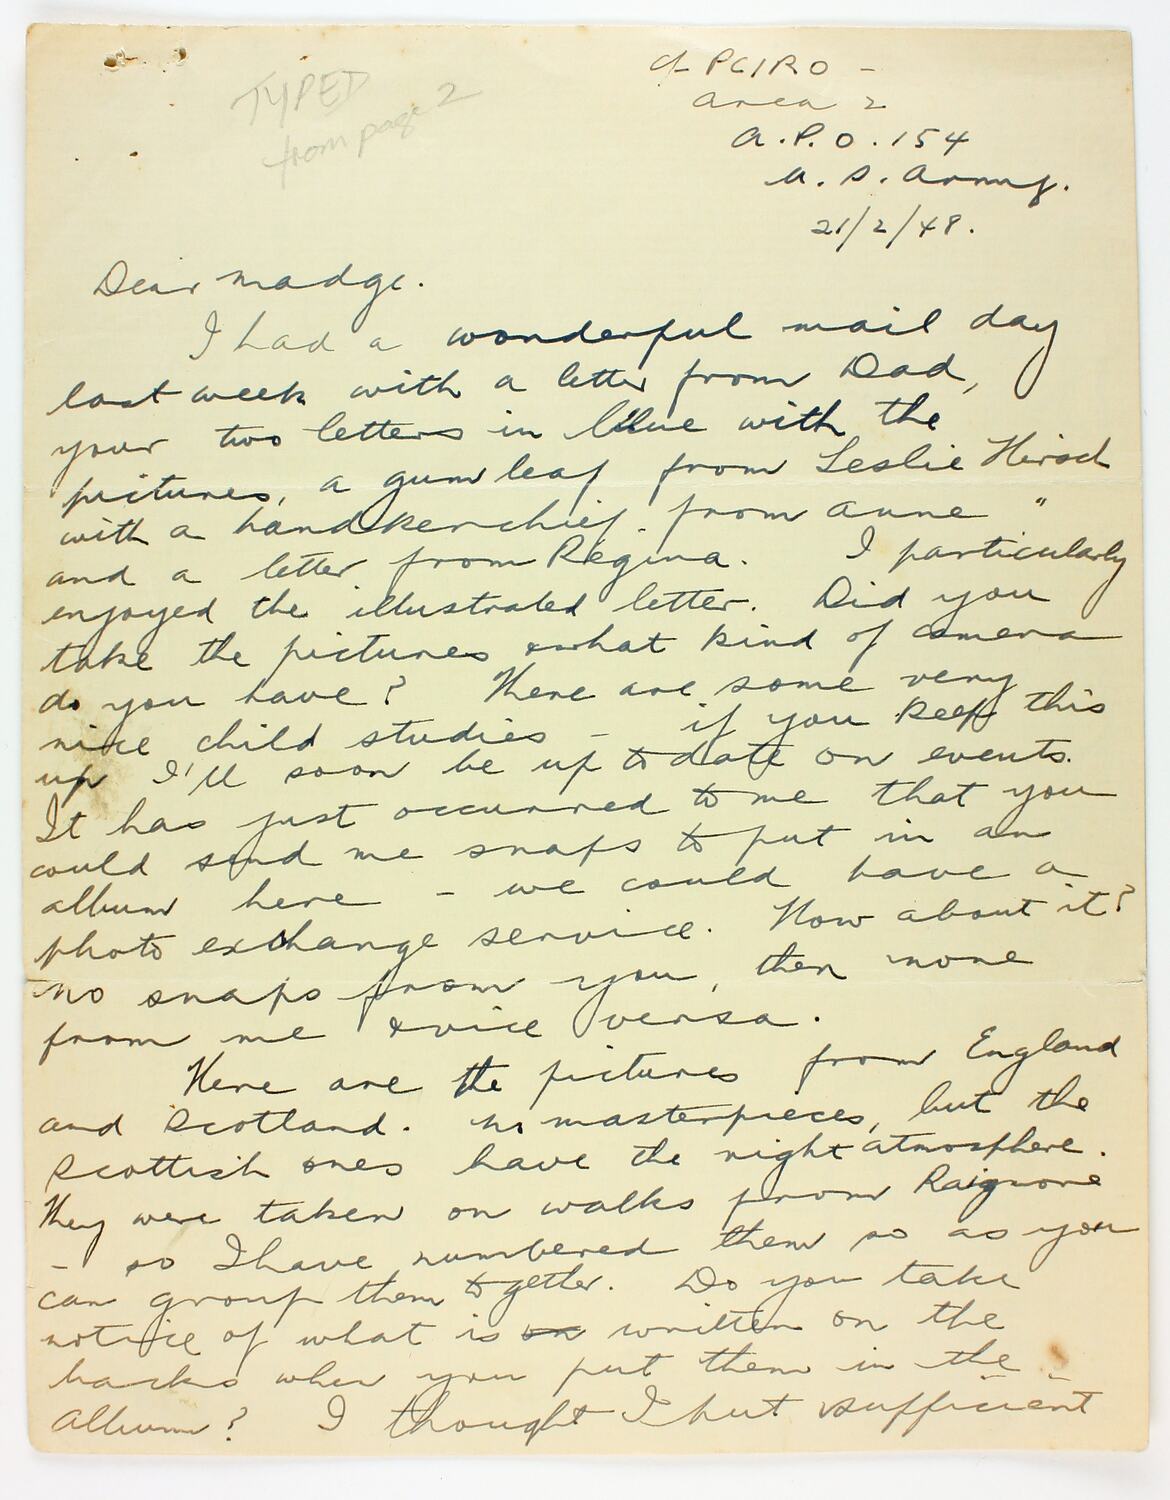 TYPED
from page 2
c/- PCIRO -
area 2
A.P.O. 154
U.S. Army.
21/2/48.
Dear Madge.
I had a wonderful mail day
last week with a letter from Dad,
your two letters in blue with the
pictures, a gum leaf from Leslie Hirsch
with a handkerchief from Anne "
and a letter from Regina. I particularly
enjoyed the illustrated letter. Did you
take the pictures & what kind of camera
do you have? There are some very
nice child studies - if you keep this
up I'll soon be up to date on events.
It has just occurred to me that you
could send me snaps to put in an
album here - we could have a
photo exchange service. How about it?
No snaps from you, then none
from me & vice versa.
Here are the pictures from England
and Scotland. No masterpieces, but the
Scottish ones have the right atmosphere.
They were taken on walks from
- so I have numbered them so as you
can group them together. Do you take
notice of what is on written on the
backs when you put them in the
album? I thought I put sufficient